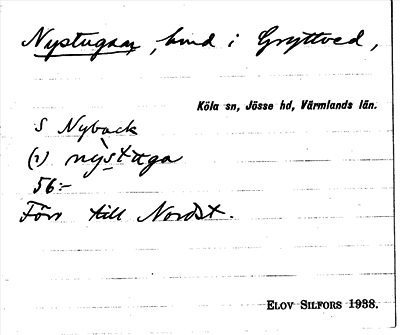 Nystugan, hmd i Gryttved,
Köla sn, Jösse hd, Värmlands län.
S Nyback
(1) nỳstuga
56:-
Förr till Nordst.
ELOV SILFORS 1938.